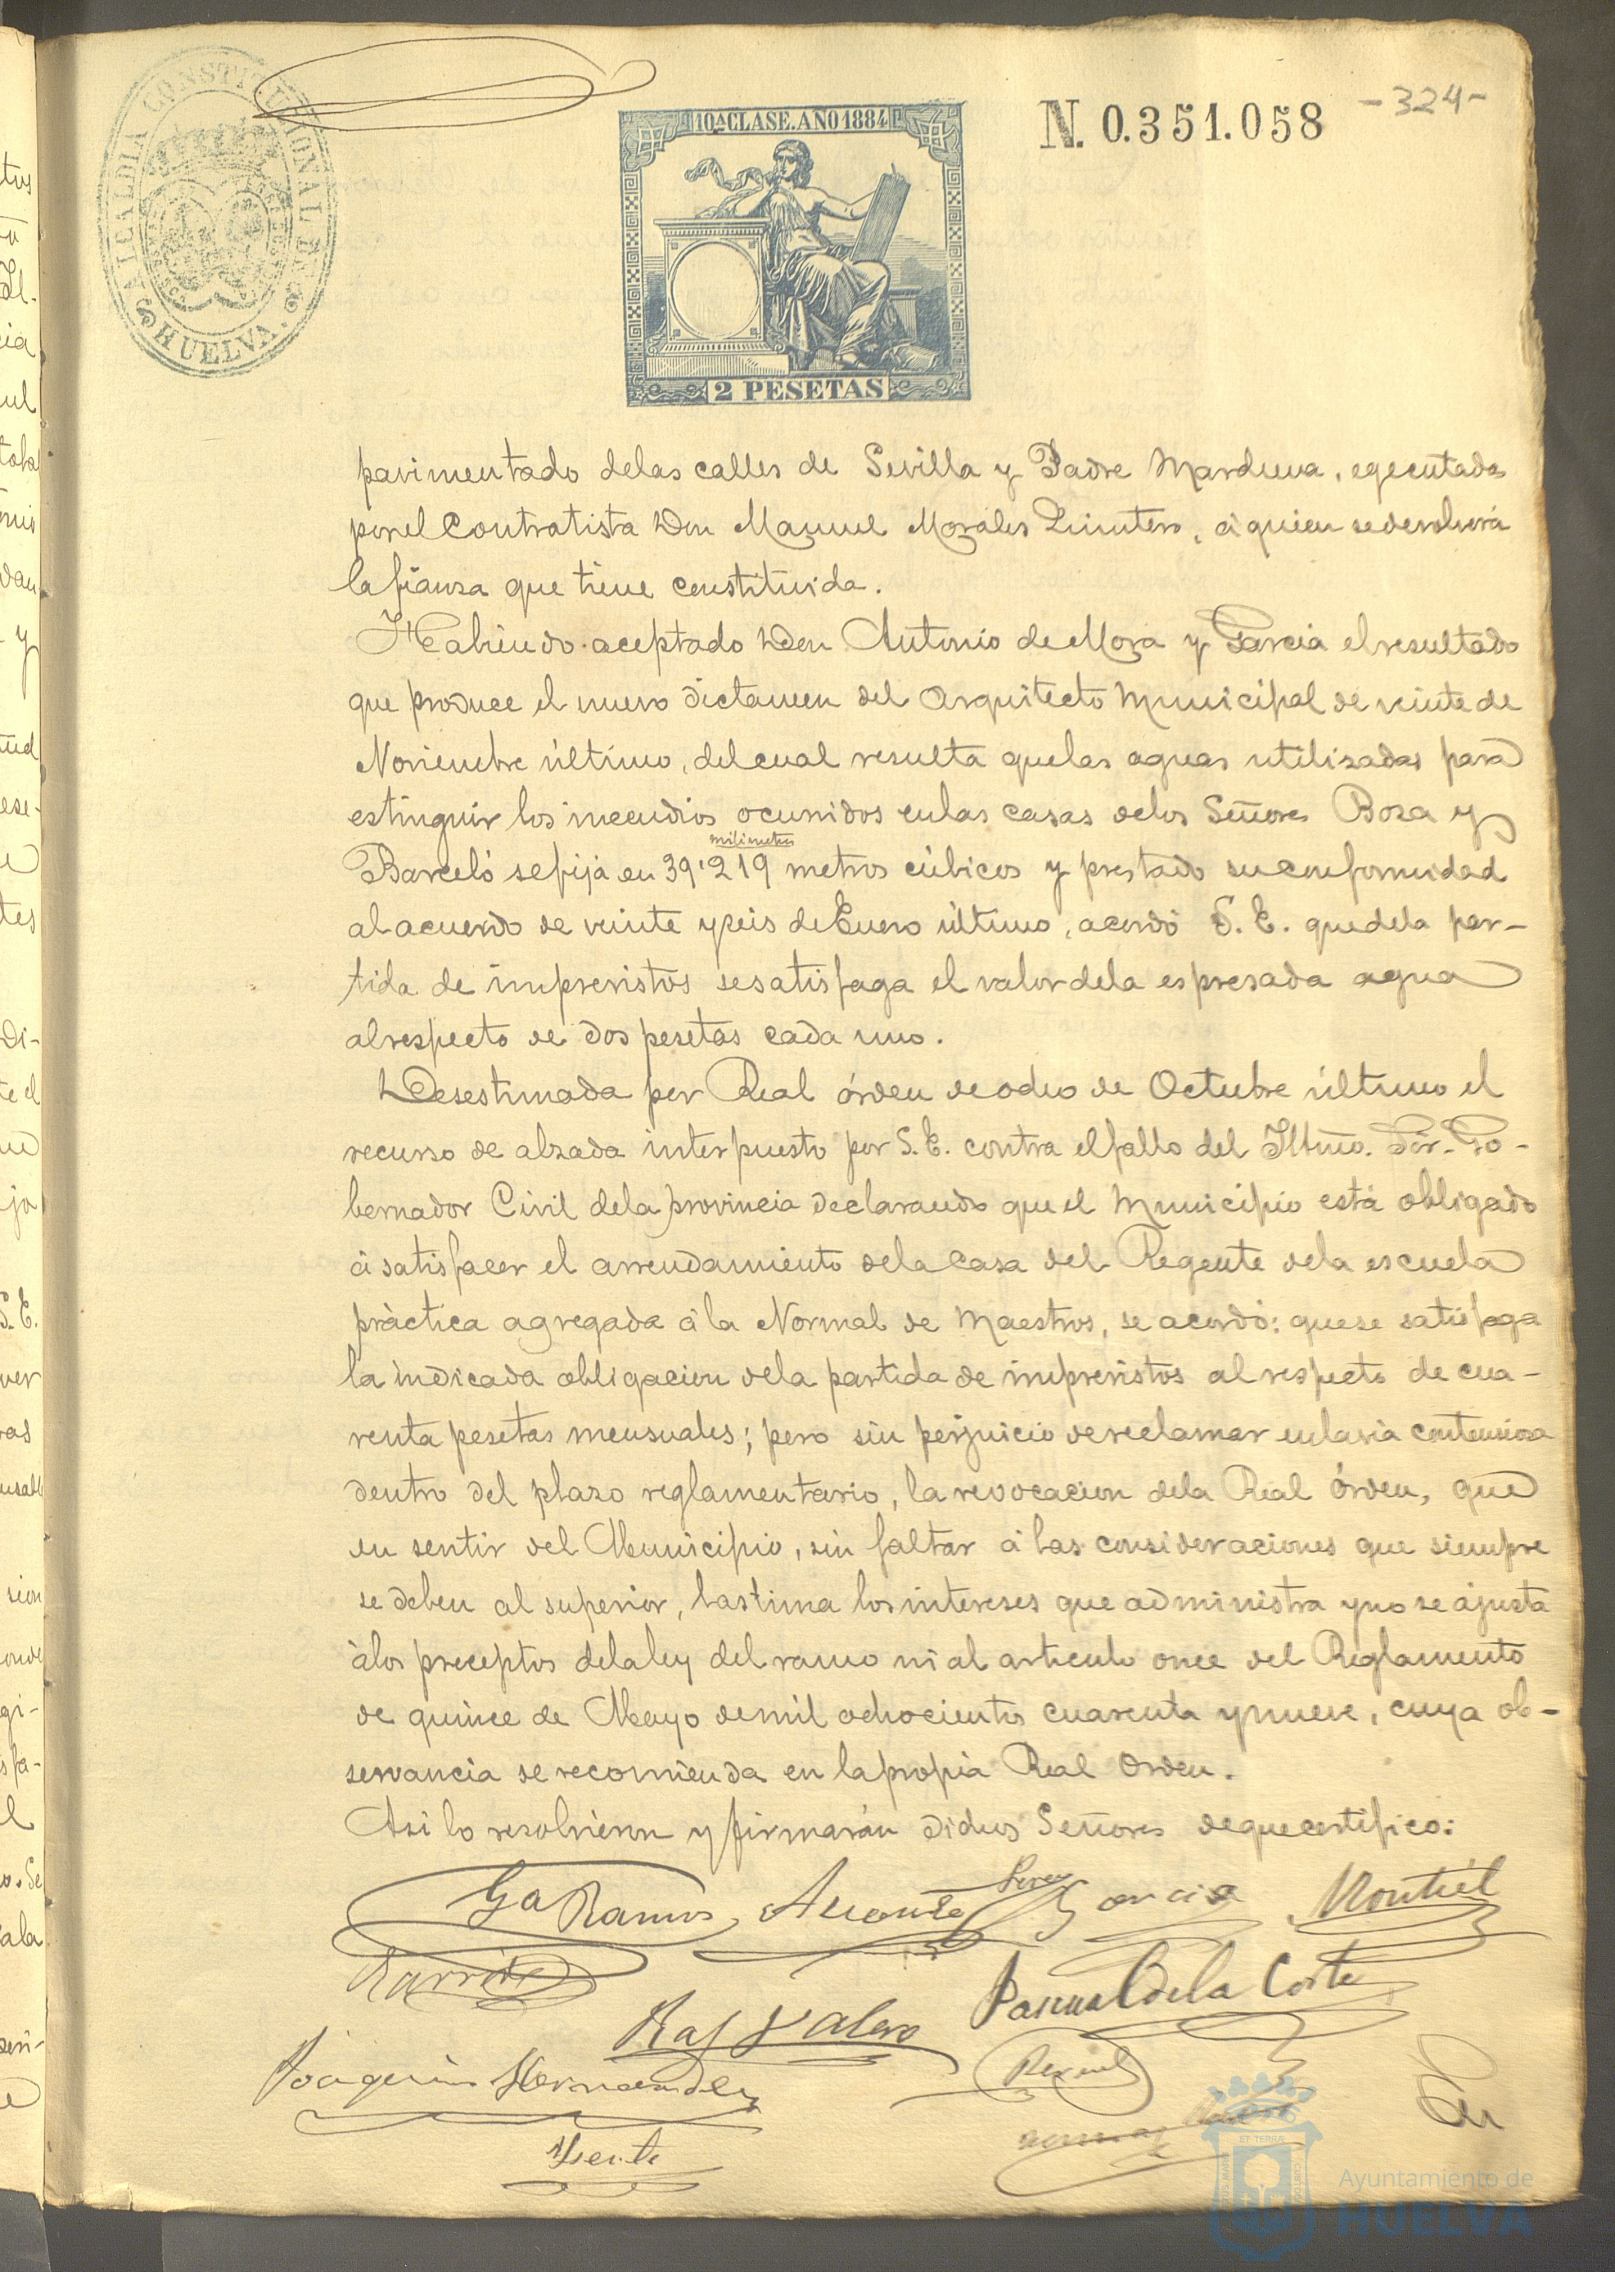 ALCALDIA CONSTITUCIONAL DE HUELVA.
10ª CLASE. AÑO 1884
N. 0.351.058
-324-
2 PESETAS
pavimentado delas calles de Sevilla y Padre Marchena, egecutadas
porel Contratista Don Manuel Morales Quintero, á quien sedevolverá
la fianza que tiene constituida.
Habiendo aceptado Don Antonio de Mora y Garcia el resultado
que produce el nuevo dictamen del Arquitecto Municipal de veinte de
Noviembre último, delcual resulta quelas aguas utilizadas para
estinguir los incendios ocurridos enlas casas delos Señores Boza y
milimetros
Barceló sefija en 39'219 metros cúbicos y prestado suconformidad
al acuerdo de veinte yseis deEnero último, acordó S. E. quedela par-
tida de imprevistos sesatisfaga el valor dela espresada agua
alrespecto de dos pesetas cada uno.
Desestimada por Real órden deocho de Octubre último el
recurso de alzada interpuesto por S. E. contra elfallo del Iltmo. Sor. Go-
bernador Civil dela provincia declarando que el Municipio está obligado
á satisfacer el arrendamiento dela casa del Regente dela escuela
práctica agregada á la Normal de Maestros, se acordó: quese satisfaga
la indicada obligacion dela partida de imprevistos al respecto de cua-
renta pesetas mensuales; pero sin perjuicio dereclamar enlavia contenciosa
dentro del plazo reglamentario, la revocacion dela Real órden, que
en sentir del Municipio, sin faltar á las consideraciones que siempre
se deben al superior, lastima los intereses que administra yno se ajusta
álos preceptos delaley del ramo ni al articulo once del Reglamento
de quince de Mayo demil ochocientos cuarenta ynueve, cuya ob-
servancia se recomienda en lapropia Real Orden.
Asi lo resolvieron y firmarán dichos Señores dequecertifico:
Ga Ramos
Garcia
Montiel
Pascual de la Corte
Raf Valero
Joaquin Hernandez
Ayuntamiento de
HUELVA